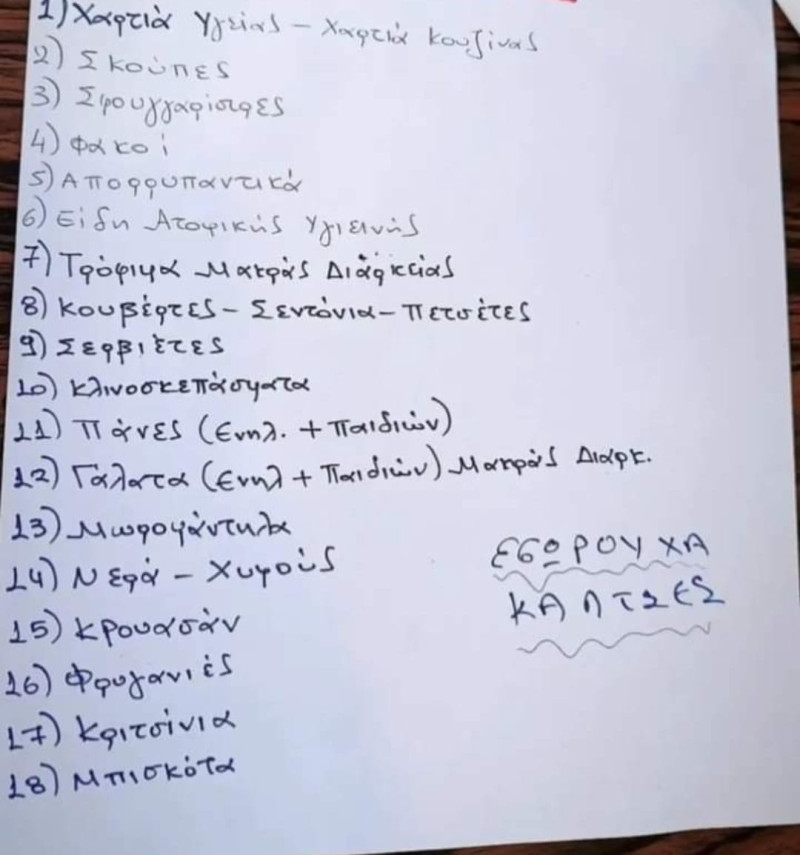 1) Χαρτιά Υγείας - Χαρτιά κουζίνας
2) Σκούπες
3) Σφουγγαρίστρες
4) Φακοί
5) Απορρυπαντικά
6) Είδη Ατομικής Υγιεινής
7) Τρόφιμα Μακράς Διάρκείας
8) Κουβέρτες - Σεντόνια - Πετσέτες
9) Σερβιέτες
10) Κλινοσκεπάσματα
11) Πάνες (Ενηλ. + Παιδιών)
12) Γάλατα (Ενηλ + Παιδιών) Μακράς Διαρκ.
13) Μωρομάντηλα
14) Νερά - Χυμούς
15) Κρουασάν
16) Φρυγανιές
17) Κριτσίνια
18) Μπισκότα
ΕΣΩΡΟΥΧΑ
ΚΑΛΤΣΕΣ